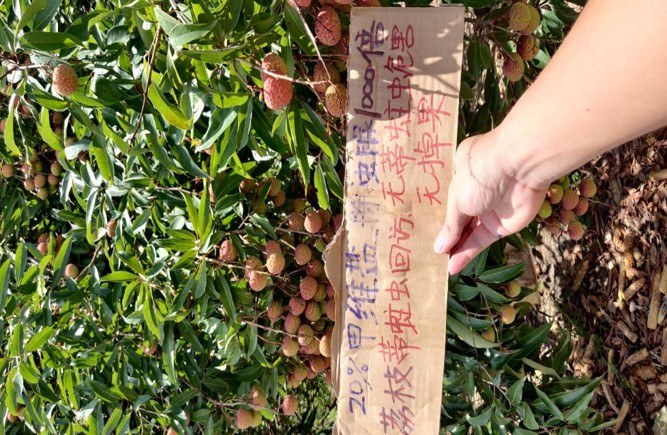 20%甲维盐.除虫脲/1000倍
荔枝蒂蛀虫回访,无蒂蛀虫危害
无掉果